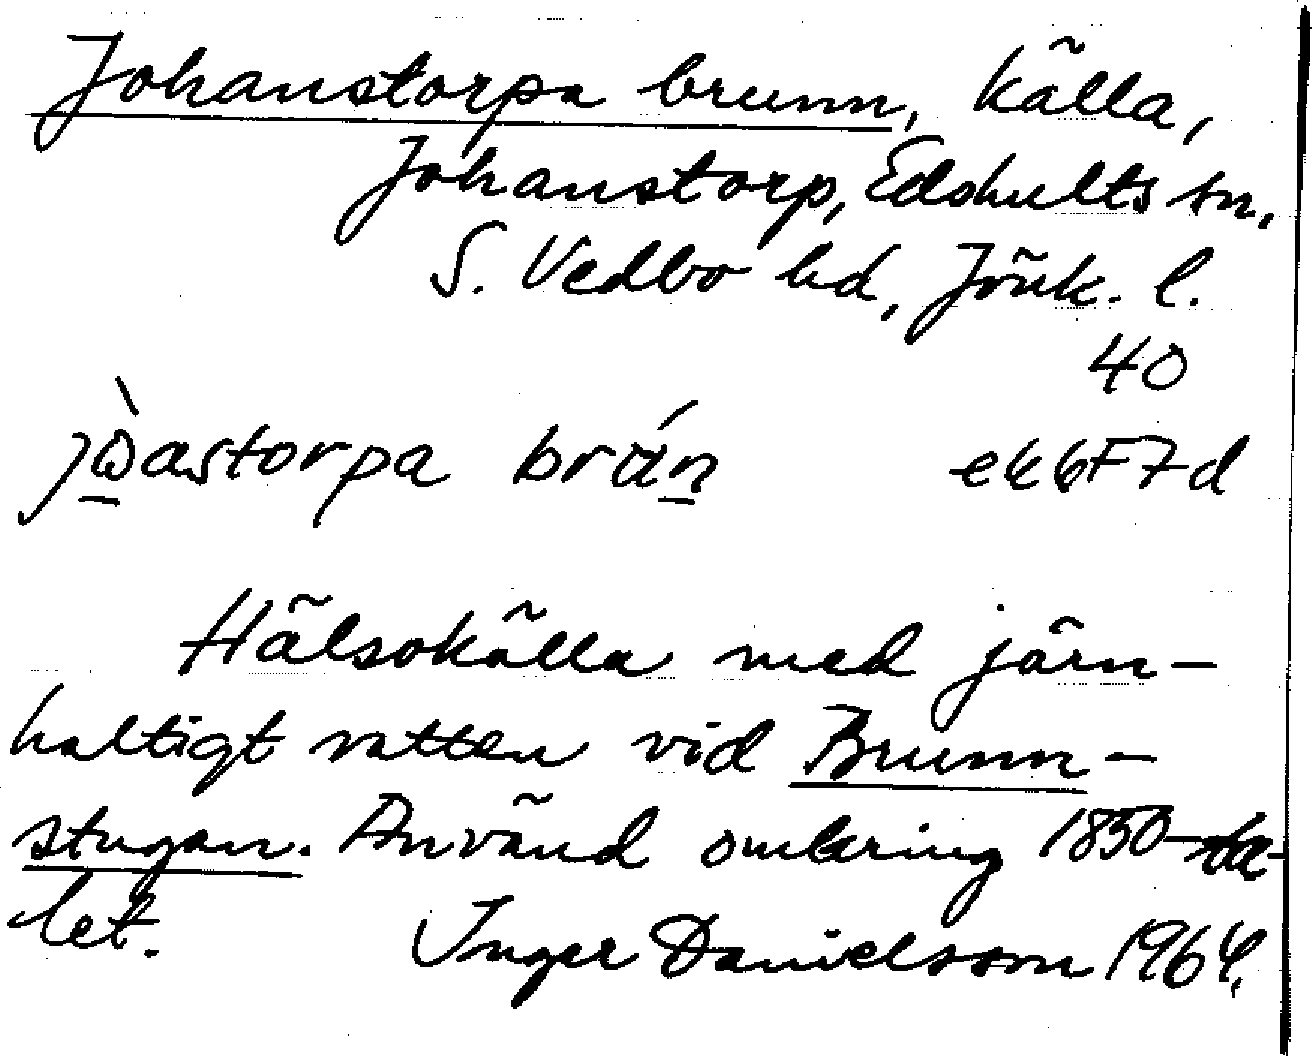 Johanstorpa brunn, källa,
Johanstorp, Edshults sn,
S. Vedbo hd, Jönk. l.
40
jòastorpa brán ek6F7d
Hälsokälla med järn-
haltigt vatten vid Brunn-
stugan. Använd omkring 1850-ta-
let. Inger Danielsson 1964.